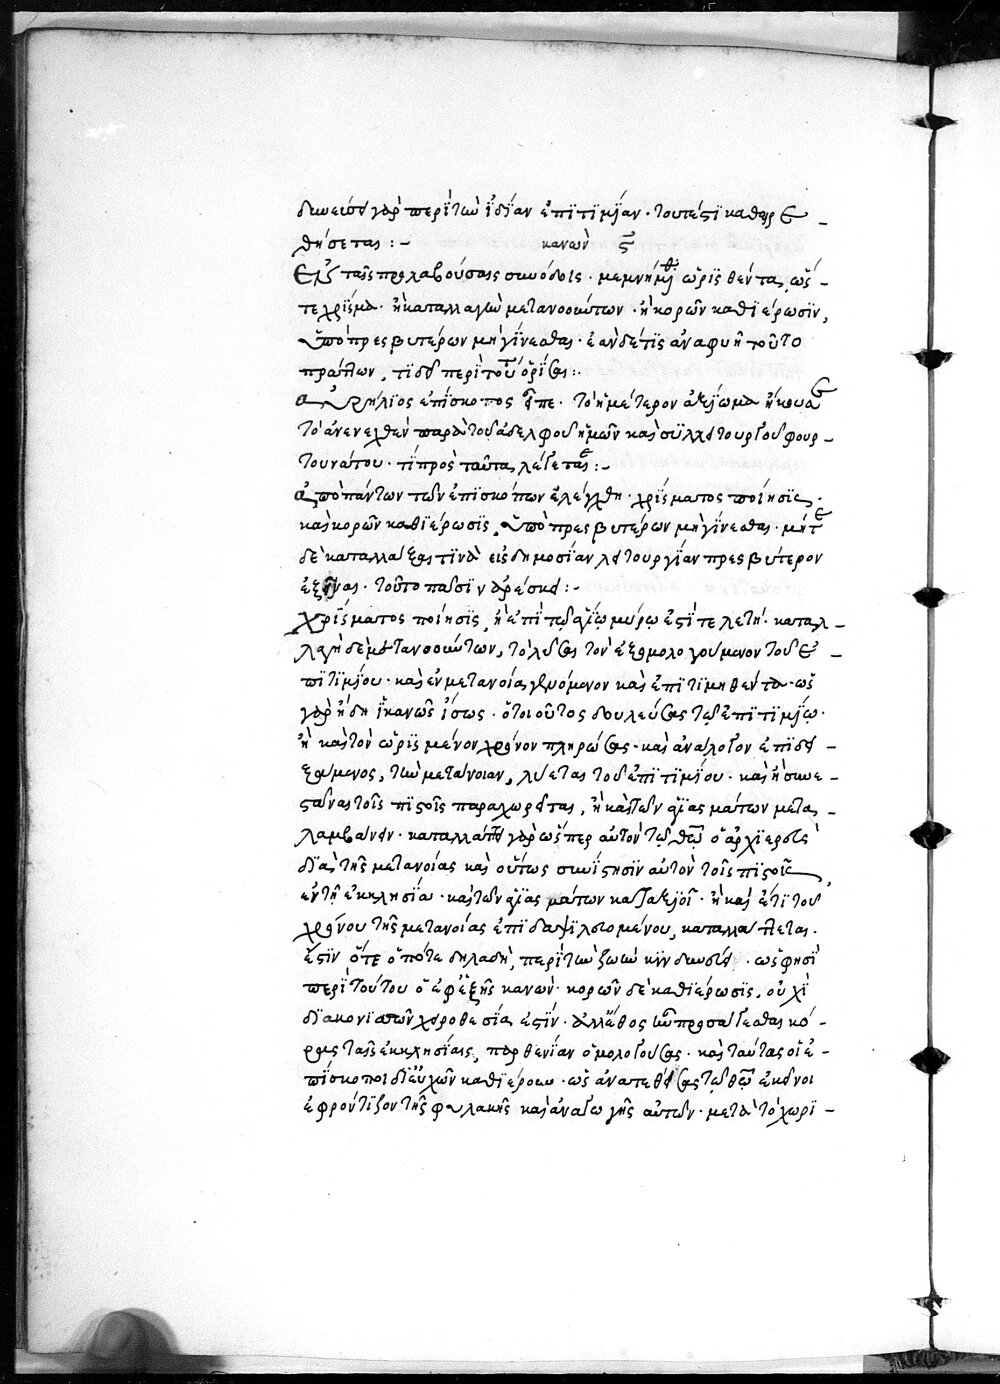 δυνεῖσθ γὰρ περὶ τὴν ἰδίαν ἐπιτιμίαν· τουτέστι καθαιρε –
θήσεται :– κανὼν ϛ
Ἐν ταῖς προλαβούσαις συνόδοις· μεμνήμεθα ὁρισθέντα, ὥσ –
τε χρίσμα· ἢ καταλλαγὴν μετανοούντων· ἢ κορῶν καθιέρωσιν,
ὑπὸ πρεσβυτέρων μὴ γίνεσθαι· ἐὰν δέ τις ἀναφυῇ τοῦτο
πράττων, τί δεῖ περὶ τούτου ὁρίσαι :–
Αὐρήλιος ἐπίσκοπος εἶπε· τὸ ἡμέτερον ἀξίωμα ἤκουσε
τὸ ἀνενεχθὲν παρὰ τοῦ ἀδελφοῦ ἡμῶν καὶ συλλειτουργοῦ φουρ –
τουνάτου· τί πρὸς ταῦτα λέγεται :–
ἀπὸ πάντων τῶν ἐπισκόπων ἐλέχθη· χρίσματος ποίησις·
καὶ κορῶν καθιέρωσις, ὑπὸ πρεσβυτέρων μὴ γίνεσθαι· μήτε
δὲ καταλλάξαι τινὰ εἰς δημοσίαν λειτουργίαν πρεσβύτερον
ἐξεῖναι· τοῦτο πᾶσιν ἀρέσκει :–
χρίσματος ποίησις, ἡ ἐπὶ τῷ ἁγίῳ μύρῳ ἐστὶ τελετή· καταλ –
λαγὴ δὲ μετανοούντων, τὸ λῦσαι τὸν ἐξομολογούμενον τοῦ ἐ –
πιτιμίου· καὶ ἐν μετανοίᾳ γενόμενον καὶ ἐπιτιμηθέντα· ὡς
γὰρ ἤδη ἱκανῶς ἴσως· ὅτι οὗτος δουλεύσας τῷ ἐπιτιμίῳ·
ἢ καὶ τὸν ὡρισμένον χρόνον πληρώσας· καὶ ἀνάλογον ἐπιδει –
ξάμενος, τὴν μετάνοιαν, λύεται τοῦ ἐπιτιμίου· καὶ ἢ συνε –
στάναι τοῖς πιστοῖς παραχωρεῖται, ἢ καὶ τῶν ἁγιασμάτων μετα –
λαμβάνειν· καταλλάττει γὰρ ὥσπερ αὐτὸν τῷ θεῷ ὁ ἀρχιερεὺς
διὰ τῆς μετανοίας καὶ οὕτως συνίστησιν αὐτὸν τοῖς πιστοῖς,
ἐν τῇ ἐκκλησίᾳ· καὶ τῶν ἁγιασμάτων καταξιοῖ· ἢ καὶ ἔτι τοῦ
χρόνου τῆς μετανοίας ἐπιδαψιλευομένου, καταλλάττεται·
ἔστιν ὅτε ὁπότε δηλαδή, περὶ τὴν ζωὴν κινδυνεύει· ὥς φησι
περὶ τούτου ὁ ἐφεξῆς κανών· κορῶν δὲ καθιέρωσις, οὐχὶ
διακονισσῶν χειροθεσία ἐστίν· ἀλλ' ἔθος ἦν προσάγεσθαι κό –
ρας ταῖς ἐκκλησίαις, παρθενίαν ὁμολογούσας· καὶ ταύτας οἱ ἐ –
πίσκοποι δι' εὐχῶν καθιέρουν· ὡς ἀνατεθείσας τῷ θεῷ ἐκεῖνοι
ἐφρόντιζον τῆς φυλακῆς καὶ ἀναγωγῆς αὐτῶν· μετὰ τὸ χωρι –